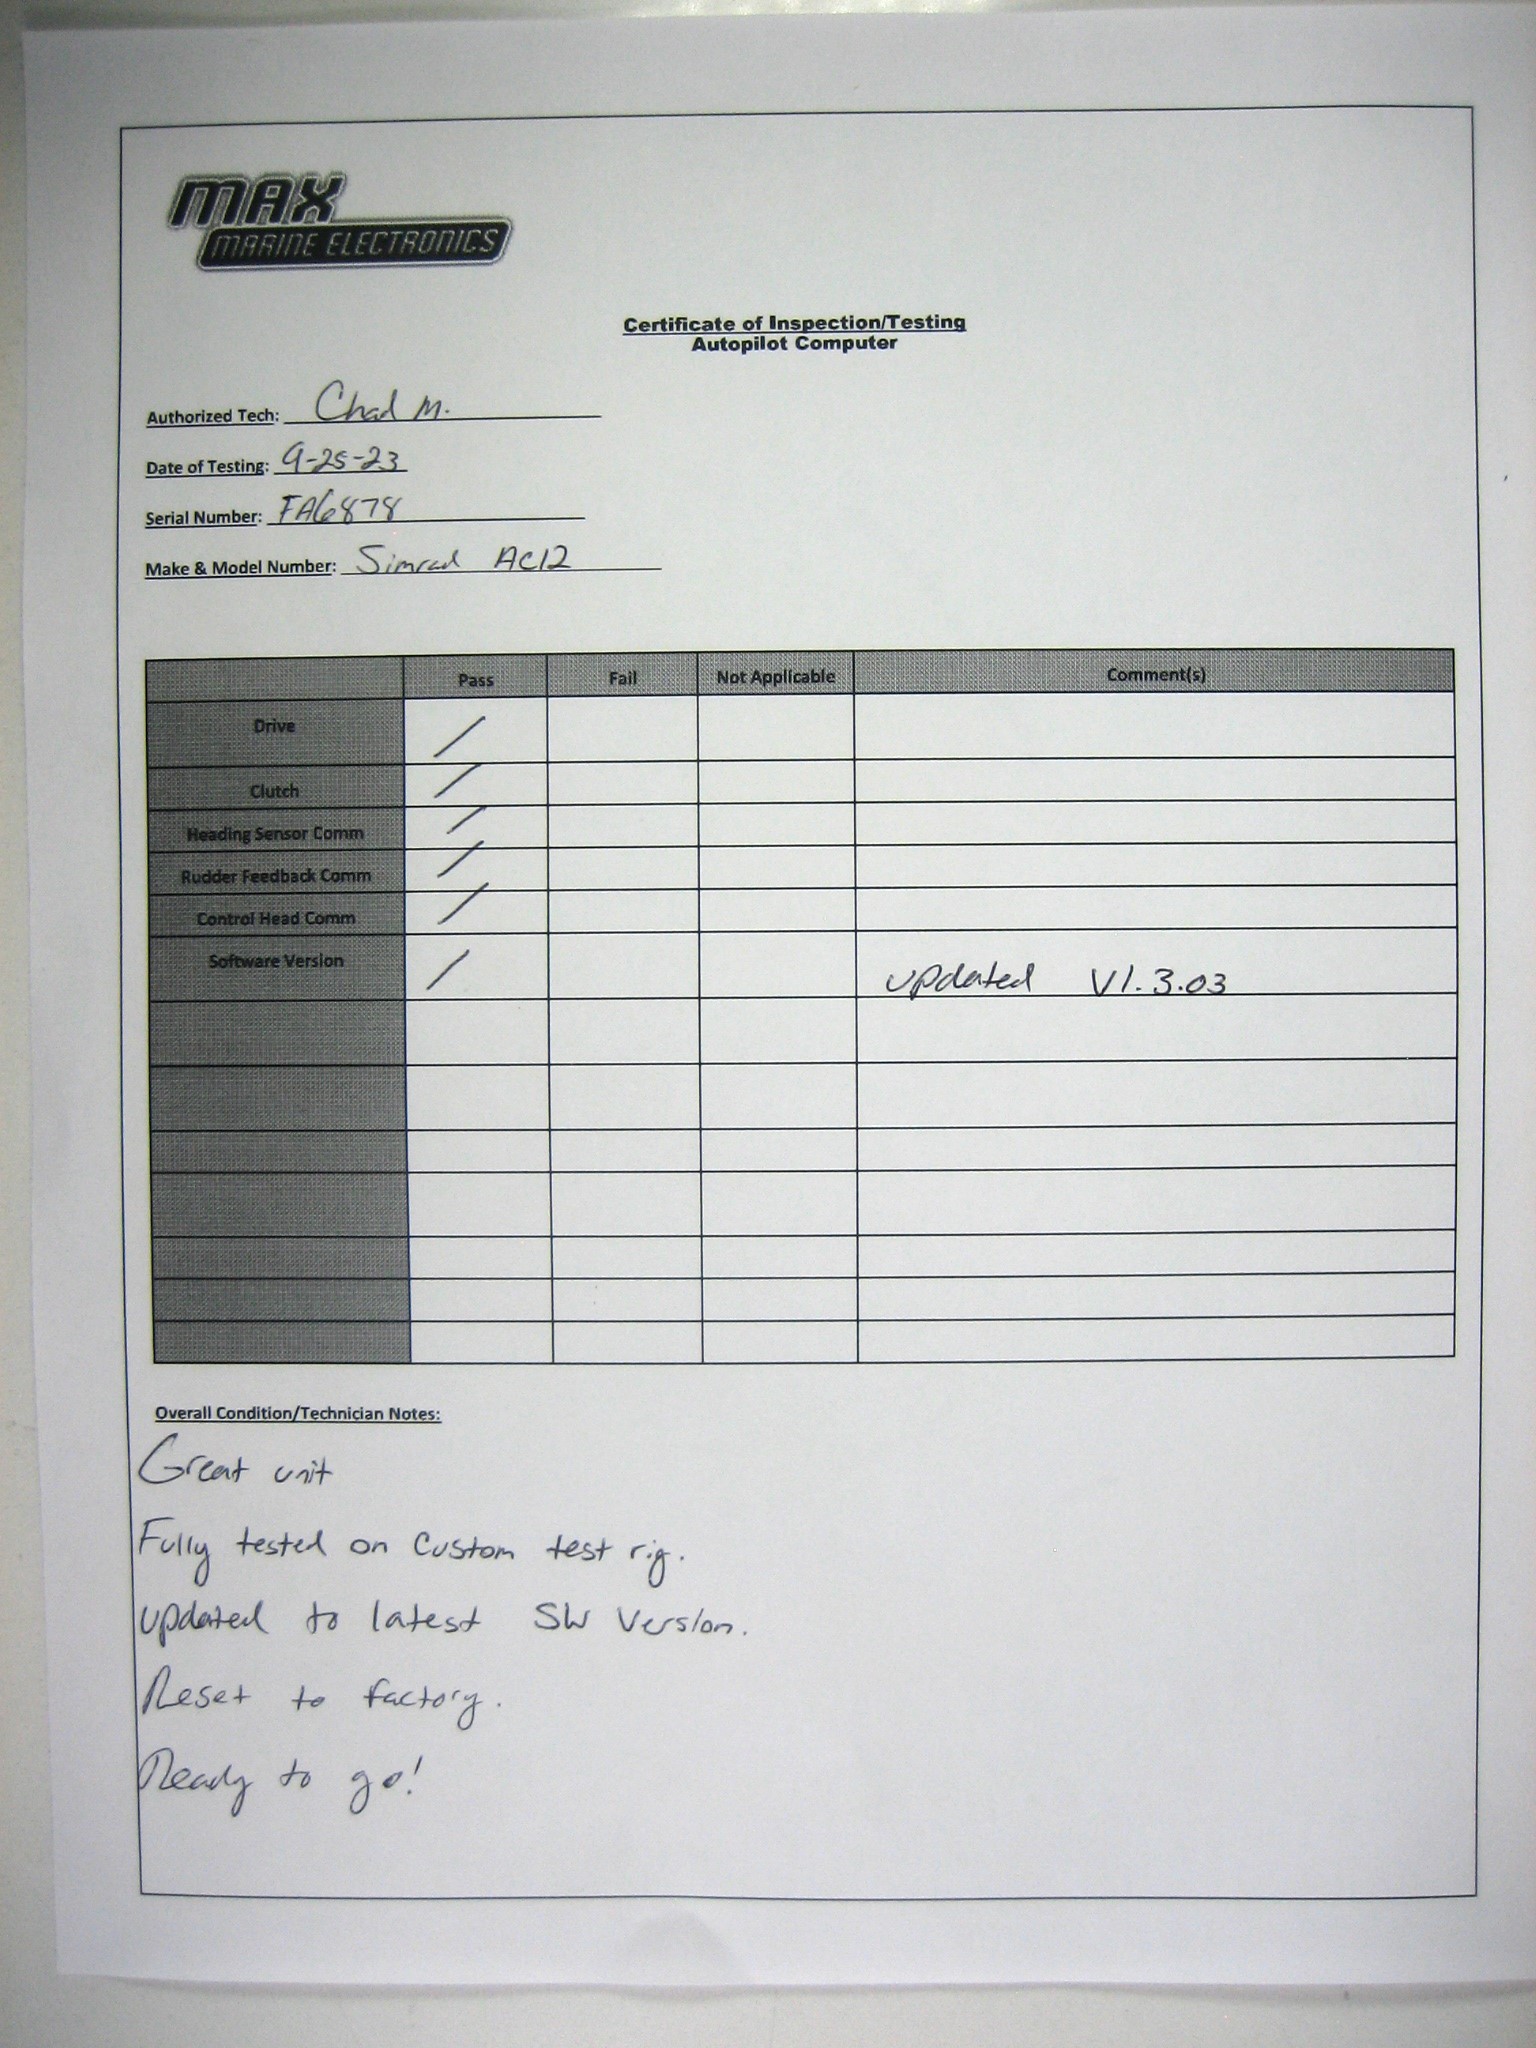 MAX
MARINE ELECTRONICS
Certificate of Inspection/Testing
Autopilot Computer
Authorized Tech: Chad M.
Date of Testing: 9-25-23
Serial Number: FA6878
Make & Model Number: Simrad AC12
Pass Fail Not Applicable Comment(s)
Drive /
Clutch /
Heading Sensor Comm /
Rudder Feedback Comm /
Control Head Comm /
Software Version / updated V1.3.03
Overall Condition/Technician Notes:
Great unit
Fully tested on Custom test rig.
updated to latest SW Version.
Reset to factory.
Ready to go!